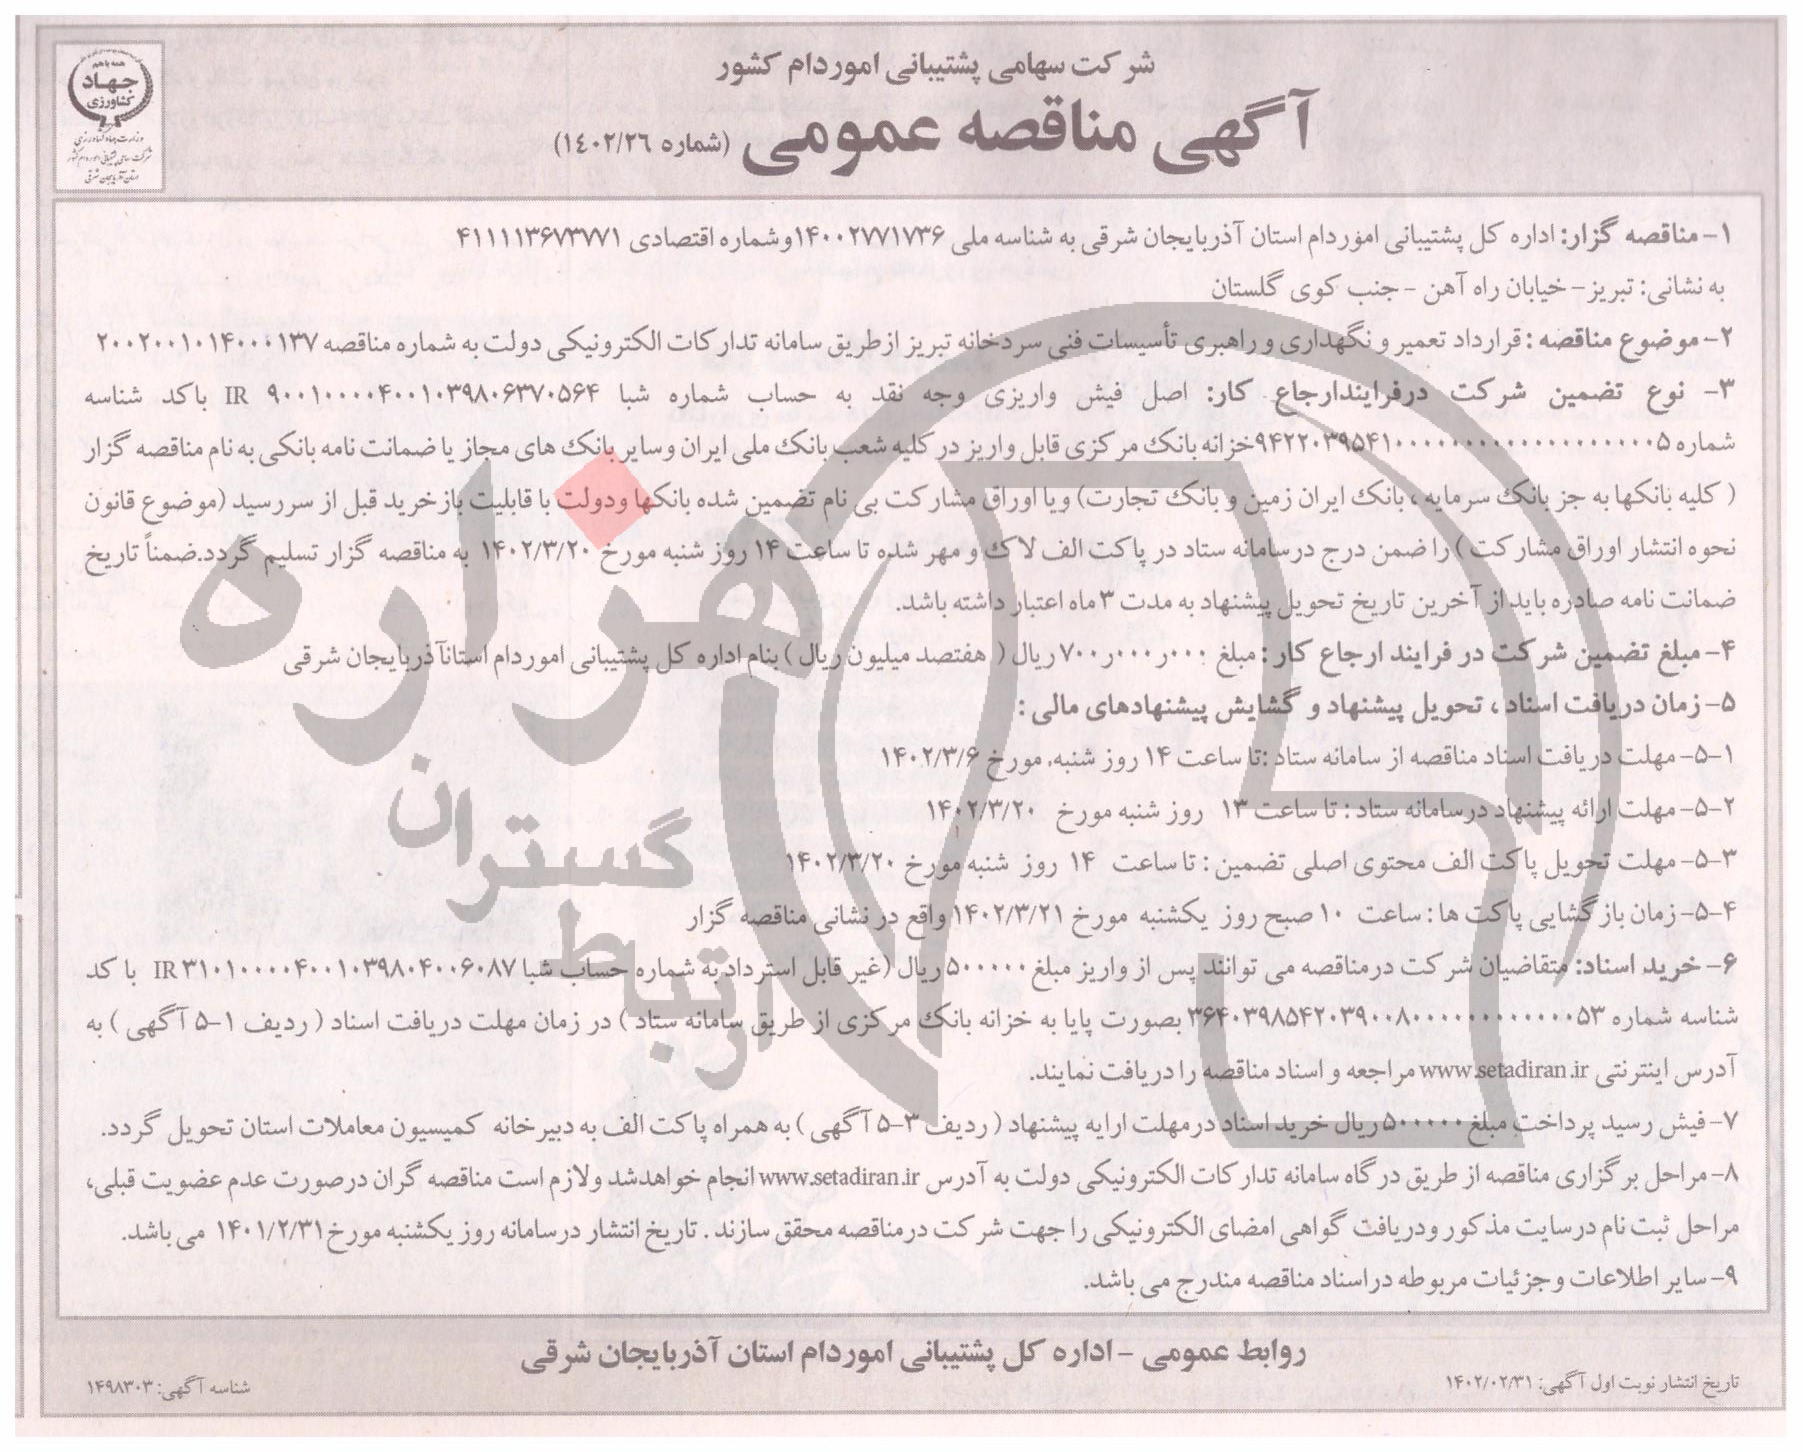 شرکت سهامی پشتیبانی اموردام کشور
آگهی مناقصه عمومی (شماره ۱۴۰۲/۲۶)
همه با هم
جهاد
کشاورزی
وزارت جهاد کشاورزی
شرکت سهامی پشتیبانی امور دام کشور
استان آذربایجان شرقی
۱- مناقصه گزار: اداره کل پشتیبانی اموردام استان آذربایجان شرقی به شناسه ملی ۱۴۰۰۲۷۷۱۷۳۶وشماره اقتصادی ۴۱۱۱۱۱۳۶۷۳۷۷۱
به نشانی: تبریز- خیابان راه آهن - جنب کوی گلستان
۲- موضوع مناقصه : قرارداد تعمیر و نگهداری و راهبری تأسیسات فنی سردخانه تبریز ازطریق سامانه تدارکات الکترونیکی دولت به شماره مناقصه ۲۰۰۲۰۰۱۰۱۴۰۰۰۱۳۷
۳- نوع تضمین شرکت درفرایندارجاع کار: اصل فیش واریزی وجه نقد به حساب شماره شبا IR ۹۰۰۱۰۰۰۰۴۰۰۱۰۳۹۸۰۶۳۷۰۵۶۴ باکد شناسه
شماره خزانه بانک مرکزی قابل واریز در کلیه شعب بانک ملی ایران وسایر بانک های مجاز یا ضمانت نامه بانکی به نام مناقصه گزار
( کلیه بانکها به جز بانک سرمایه ، بانک ایران زمین و بانک تجارت) ویا اوراق مشارکت بی نام تضمین شده بانکها ودولت با قابلیت بازخرید قبل از سررسید (موضوع قانون
نحوه انتشار اوراق مشارکت ) را ضمن درج درسامانه ستاد در پاکت الف لاک و مهر شده تا ساعت ۱۴ روز شنبه مورخ ۱۴۰۲/۳/۲۰ به مناقصه گزار تسلیم گردد.ضمناً تاریخ
ضمانت نامه صادره باید از آخرین تاریخ تحویل پیشنهاد به مدت ۳ ماه اعتبار داشته باشد.
۴- مبلغ تضمین شرکت در فرایند ارجاع کار : مبلغ ۷۰۰ر۰۰۰ر۰۰۰ ریال ( هفتصد میلیون ریال ) بنام اداره کل پشتیبانی اموردام استانآذربایجان شرقی
۵- زمان دریافت اسناد ، تحویل پیشنهاد و گشایش پیشنهادهای مالی :
۵-۱- مهلت دریافت اسناد مناقصه از سامانه ستاد :تا ساعت ۱۴ روز شنبه، مورخ ۱۴۰۲/۳/۶
۵-۲- مهلت ارائه پیشنهاد درسامانه ستاد : تا ساعت ۱۳ روز شنبه مورخ ۱۴۰۲/۳/۲۰
۵-۳- مهلت تحویل پاکت الف محتوی اصلی تضمین : تا ساعت ۱۴ روز شنبه مورخ ۱۴۰۲/۳/۲۰
۵-۴- زمان بازگشایی پاکت ها : ساعت ۱۰ صبح روز یکشنبه مورخ ۱۴۰۲/۳/۲۱ واقع در نشانی مناقصه گزار
۶- خرید اسناد: متقاضیان شرکت درمناقصه می توانند پس از واریز مبلغ ۵۰۰۰۰۰ ریال (غیر قابل استرداد به شماره حساب شبا IR ۳۱۰۱۰۰۰۰۴۰۰۱۰۳۹۸۰۴۰۰۶۰۸۷ با کد
شناسه شماره بصورت پایا به خزانه بانک مرکزی از طریق سامانه ستاد ) در زمان مهلت دریافت اسناد ( ردیف ۱-۵ آگهی ) به
آدرس اینترنتی www.setadiran.ir مراجعه و اسناد مناقصه را دریافت نمایند.
۷- فیش رسید پرداخت مبلغ ۵۰۰۰۰۰ ریال خرید اسناد درمهلت ارایه پیشنهاد ( ردیف ۳-۵ آگهی ) به همراه پاکت الف به دبیرخانه کمیسیون معاملات استان تحویل گردد.
۸- مراحل برگزاری مناقصه از طریق درگاه سامانه تدارکات الکترونیکی دولت به آدرس www.setadiran.ir انجام خواهدشد ولازم است مناقصه گران درصورت عدم عضویت قبلی،
مراحل ثبت نام درسایت مذکور ودریافت گواهی امضای الکترونیکی را جهت شرکت درمناقصه محقق سازند . تاریخ انتشار درسامانه روز یکشنبه مورخ ۱۴۰۱/۲/۳۱ می باشد.
۹- سایر اطلاعات و جزئیات مربوطه دراسناد مناقصه مندرج می باشد.
هزاره
گستران
ارتباط
روابط عمومی - اداره کل پشتیبانی اموردام استان آذربایجان شرقی
تاریخ انتشار نوبت اول آگهی: ۱۴۰۲/۰۲/۳۱
شناسه آگهی: ۱۴۹۸۳۰۳